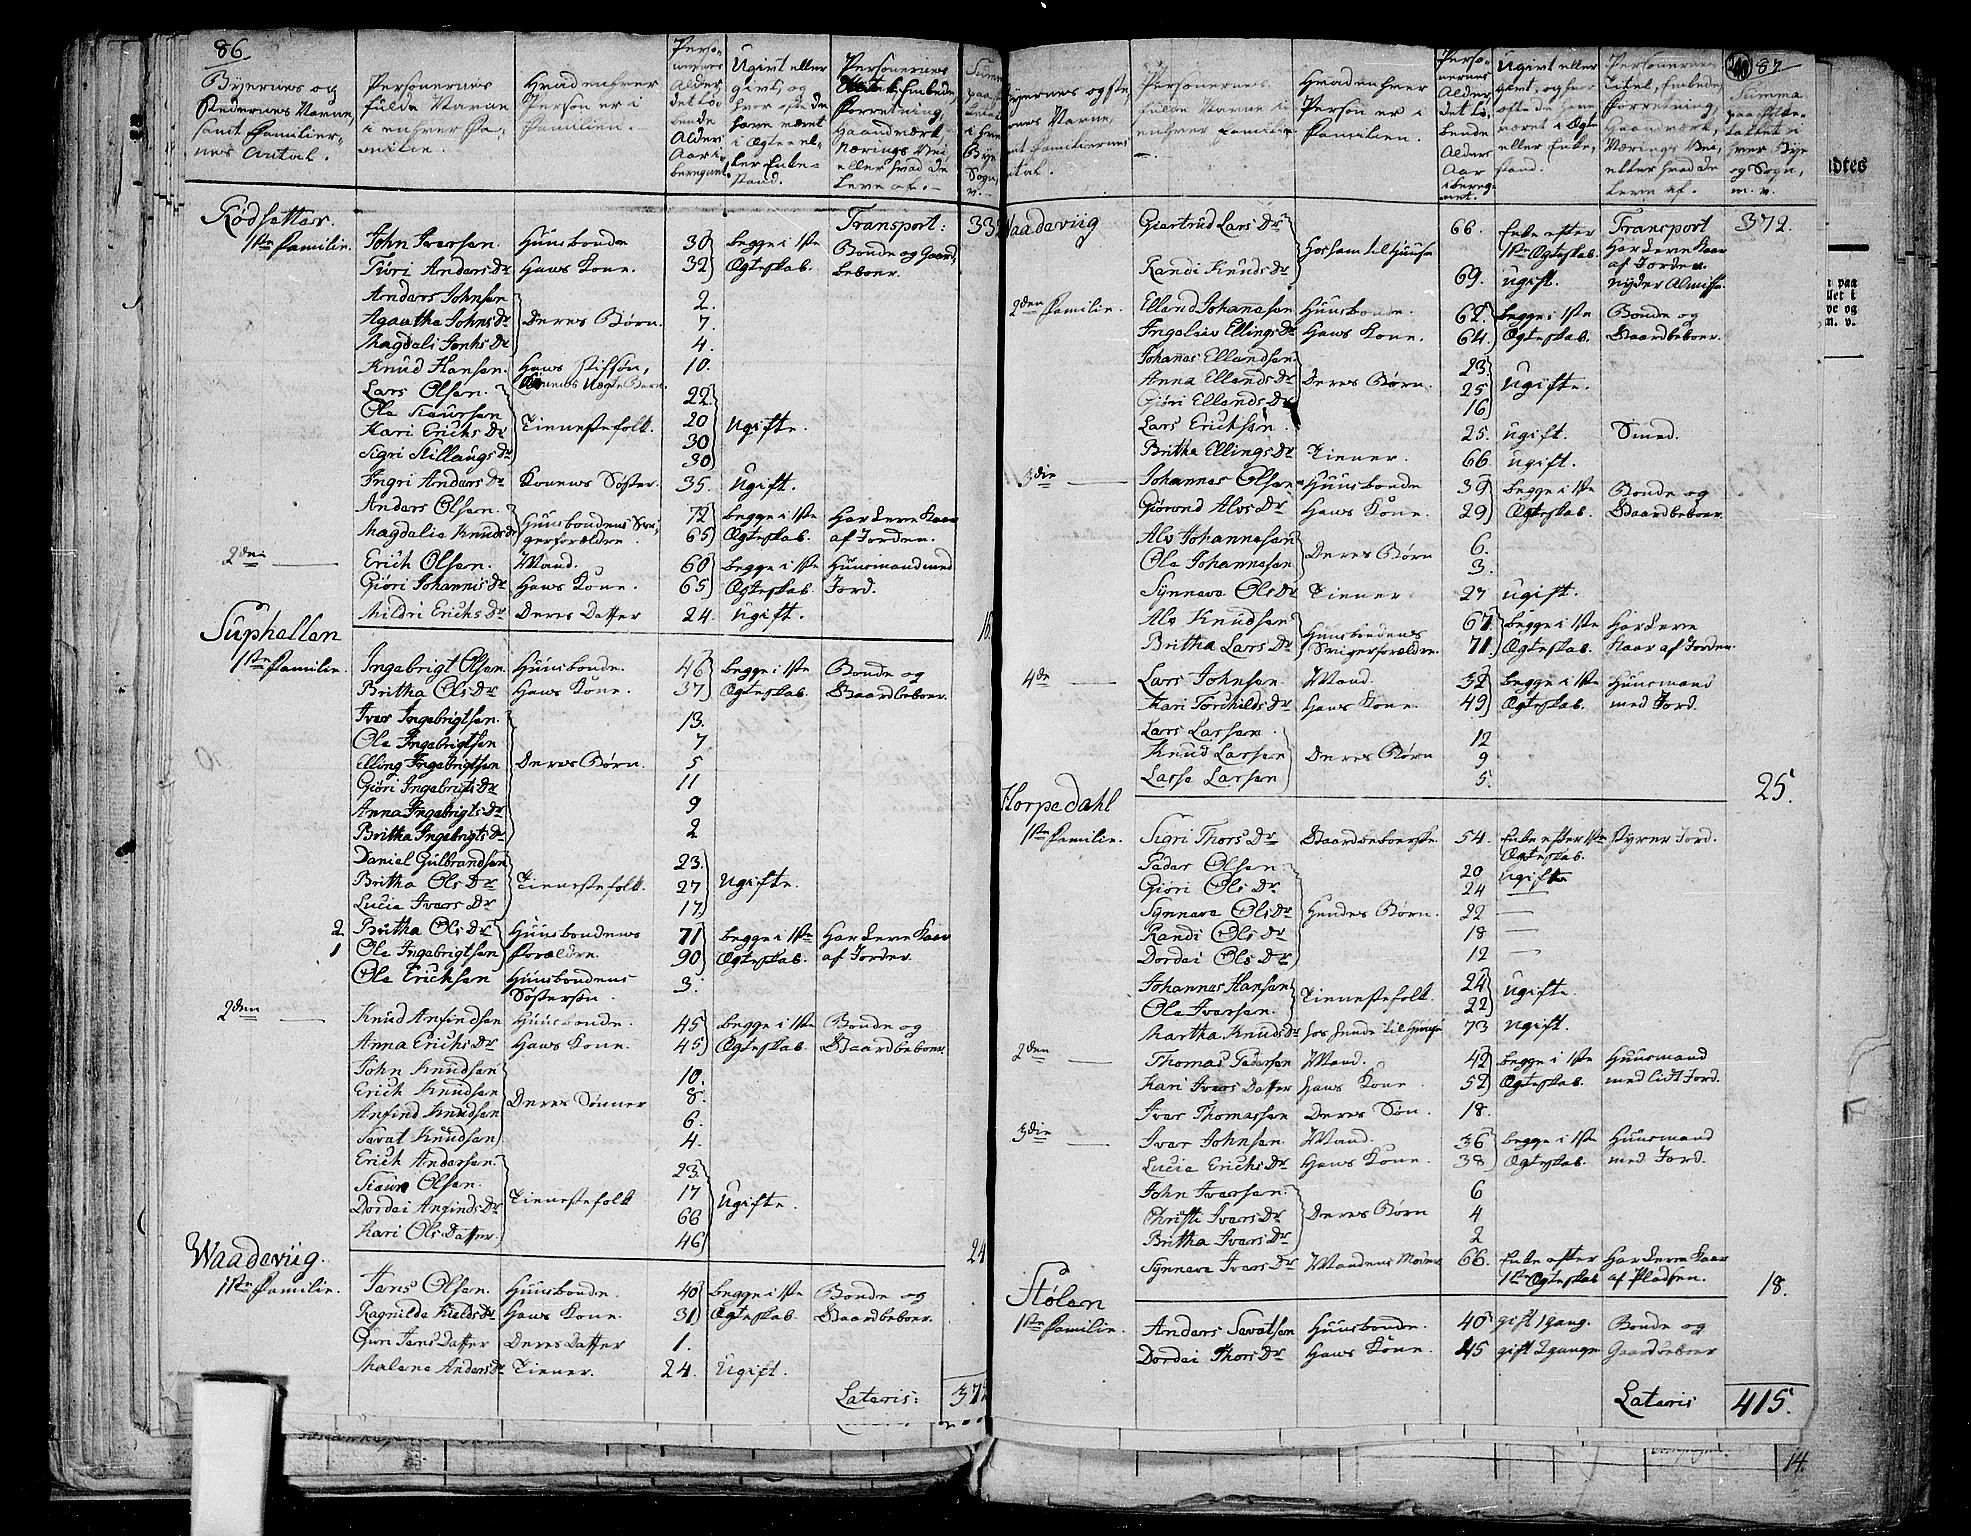 86
Byernes og Stedernes Navne, samt Familiernes Antal.
Personernes fulde Navne i enhver Familie.
Hvad enhver Person er i Familien.
Personernes Alder, det løbende Alders Aar iberegnet.
Ugivt eller givt, og hvor ofte de have været i Ægte- eller Enkestand.
Personernes Titel, Embede, Forretning, Haandværk, Nærings Vei eller hvad de leve af.
Rødsetter. Transport: 332
1ste Familie. John Iversen. Huusbonde 30 begge i 1ste Bonde og Gaard
Turi Anders Dr Hans Kone. 32 Ægteskab. beboer.
Anders Johnsen 2.
Agaatha Johns Dr Deres Børn. 7.
Magdeli Johns Dr 4.
Knud Hansen. Hans stifsøn, 10.
Konens Uægte Barn
Lars Olsen. 22.
Ole Siursen 20
Kari Erichs Dr Tienestefolk. 30 Ugifte.
Sigri Killaugs Dr 30
Ingri Anders Dr Konens Søster. 35. Ugift.
Anders Olsen. Huusbondens Svi- 72 begge i 1ste Har deres Kaar
Magdelie Knuds Dr gerforældre. 65 Ægteskab. af Jorden.
2den Erich Olsen. Mand. 60 begge i 1ste Huusmand med
Giøri Johannis Dr Hans Kone. 65 Ægteskab. Jord.
Mildri Erichs Dr Deres Datter 24. Ugift.
Suphellen 18
1ste Familie. Ingebrigt Olsen. Huusbonde. 46 begge i 1ste Bonde og
Britha Ols Dr Hans Kone. 37 Ægteskab. Gaardbeboer.
Iver Ingebrigtsen. 13.
Ole Ingebrigtsen 7
Elling Ingebrigtsen Deres Børn. 5
Giøri Ingebrigts Dr 11
Anna Ingebrigts Dr 9
Britha Ingebrigts Dr 2
Daniel Gulbrandsen 23.
Britha Ols Dr Tienestefolk. 27 Ugifte.
Lucie Ivers Dr 17.
2 Britha Ols Dr Huusbondens 71 begge i 1ste Har deres Kaar
1 Ole Ingebrigtsen Forældre. 90 Ægteskab. af Jorden.
Ole Erichsen Huusbondens 3.
Søstersøn.
2den Knud Anfindsen Huusbonde. 45 begge i 1ste Bonde og
Anna Erichs Dr Hans Kone. 45 Ægteskab. Gaardbeboer.
John Knudsen 10.
Erich Knudsen Deres Sønner 8.
Anfind Knudsen 6.
Sevat Knudsen 4.
Erich Andersen. 23.
Siur Olsen. 17
Dordei Anfinds Dr Tienestefolk 66 Ugifte.
Kari Ols Datter. 46
Waadeviig. 24
1ste Familie. Jens Olsen. Huusbonde 40 begge i 1ste Bonde og
Ragnilde Kields Dr Hans Kone. 31 Ægteskab. Gaardbeboer.
Guri Jens Datter Deres Datter 1.
Malene Anders Dr Tiener. 24. Ugift.
Lateris: 372
87
Personernes fulde Navne i enhver Familie.
Hvad enhver Person er i Familien.
Personernes Alder, det løbende Alders Aar iberegnet.
Ugivt eller givt, og hvor ofte de have været i Ægte eller Enkestand.
Personernes Titel, Embede, Forretning, Haandværk, Nærings Vei, eller hvad de leve af.
Summa paa Folketallet i hver Bye og Sogn, m. v.
Waadeviig Giertrud Lars Dr Hos ham til Huuse 66. Enke efter Transport 372.
1ste Ægteskab. Har deres Kaar
af Jorden.
Randi Knuds Dr 69. ugift. nyder Almisse.
2den Familie. Elland Johannesen Huusbonde. 62. begge i 1ste Bonde og
Ingeleiv Ellings Dr Hans Kone. 64. Ægteskab. Gaardbeboer.
Johanes Ellandsen 23.
Anna Ellands Dr Deres Børn. 25 Ugifte.
Giøri Ellands Dr 16
Lars Erichsen. 25. ugift. Smed.
Britha Ellings Dr Tiener. 66 ugift.
3die Johannes Olsen Huusbonde 39 begge i 1ste Bonde og
Giørond Alvs Dr Hans Kone. 29 Ægteskab. Gaardbeboer.
Alv Johannesen Deres Børn 6.
Ole Johannesen 3.
Synneve Ols Dr Tiener 27 ugift.
Alv Knudsen Huusbondens 67. begge i 1ste Har deres
Britha Lars Dr Svigerforældre. 71. Ægteskab. Kaar af Jorden.
4de Lars Johnsen Mand. 32 begge i 1ste Huusmand
Kari Torchilds Dr Hans Kone. 49 Ægteskab. med Jord.
Lars Larsen. 12
Knud Larsen Deres Børn 9
Lasse Larsen 5.
Horpedahl 25.
1ste Familie. Sigri Thors Dr Gaardbeboerske. 54. Enke efter 1ste styrer Jord.
Ægteskab.
Peder Olsen. 20 ugift
Giøri Ols Dr 24 —
Synneve Ols Dr Hendes Børn. 22 —
Randi Ols Dr 18 —
Dordei Ols Dr 12 —
Johannes Hansen Tienestefolk. 24 ugifte.
Ole Iversen. 22
Martha Knuds Dr hos hende til Huuse 73 ugift.
2den Thomas Pedersen Mand. 42 begge i 1ste Huusmand
Kari Ivers Datter hans Kone. 52 Ægteskab. med lidt Jord.
Iver Thomassen Deres Søn. 18.
3die Iver Johnsen. Mand. 36 begge i 1ste Huusmand
Lucie Erichs Dr Hans Kone. 38 Ægteskab. med Jord.
John Iversen. 6
Christi Ivers Dr Deres Børn 4
Britha Ivers Dr 2
Synneve Ivers Dr Mandens Moder 66. Enke efter Har deres Kaar
1ste Ægteskab af Pladsen.
Stølen 18.
1ste Familie. Anders Sevatsen Huusbonde. 40 gift 1 gang. Bonde og
Dordei Thors Dr Hans Kone. 45 gift 2 gange Gaardbeboer
Lateris 415.
14.